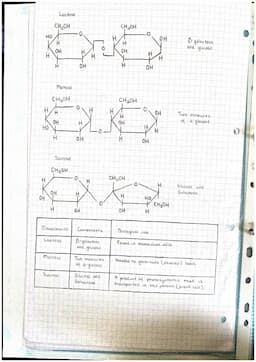 Lactose
CH₂OH
CH₂OH
HO
OH
O
O
H
OH
H
H
OH
H
H
OH
H
OH
β galactose
and glucose
Maltose
CH₂OH
CH₂OH
H
O
H
H
OH
OH
H
HO
O
H
OH
H
OH
Two molecules
of α glucose
Sucrose
CH₂OH
CH₂OH
H
O
H
O
H
OH
H
HO
OH
O
CH₂OH
H
OH
OH
H
Glucose and
fructose
Disaccharide
Components
Biological role
Lactose
β-galactose
and glucose
Found in mammalian milk
Maltose
Two molecules
of α-glucose
Sucrose
Glucose and
fructose
A product of photosynthesis that is
transported in the phloem (plant cell)